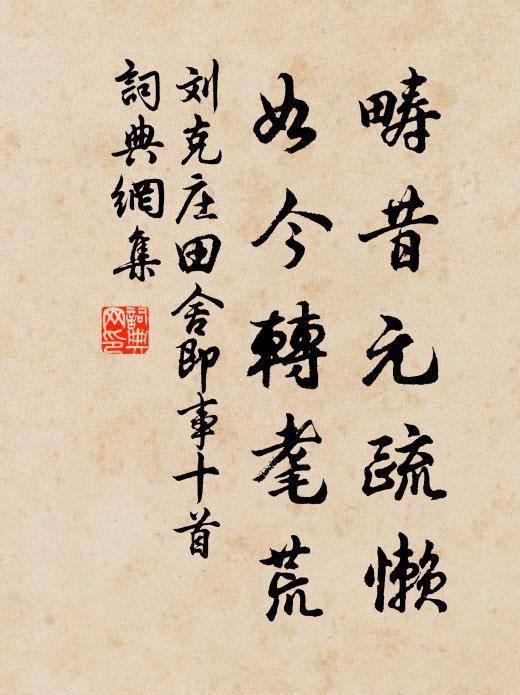 畴昔元疏懒
如今轉耄荒
刘克庄田舍即事十首
詞典網集
詞典网印